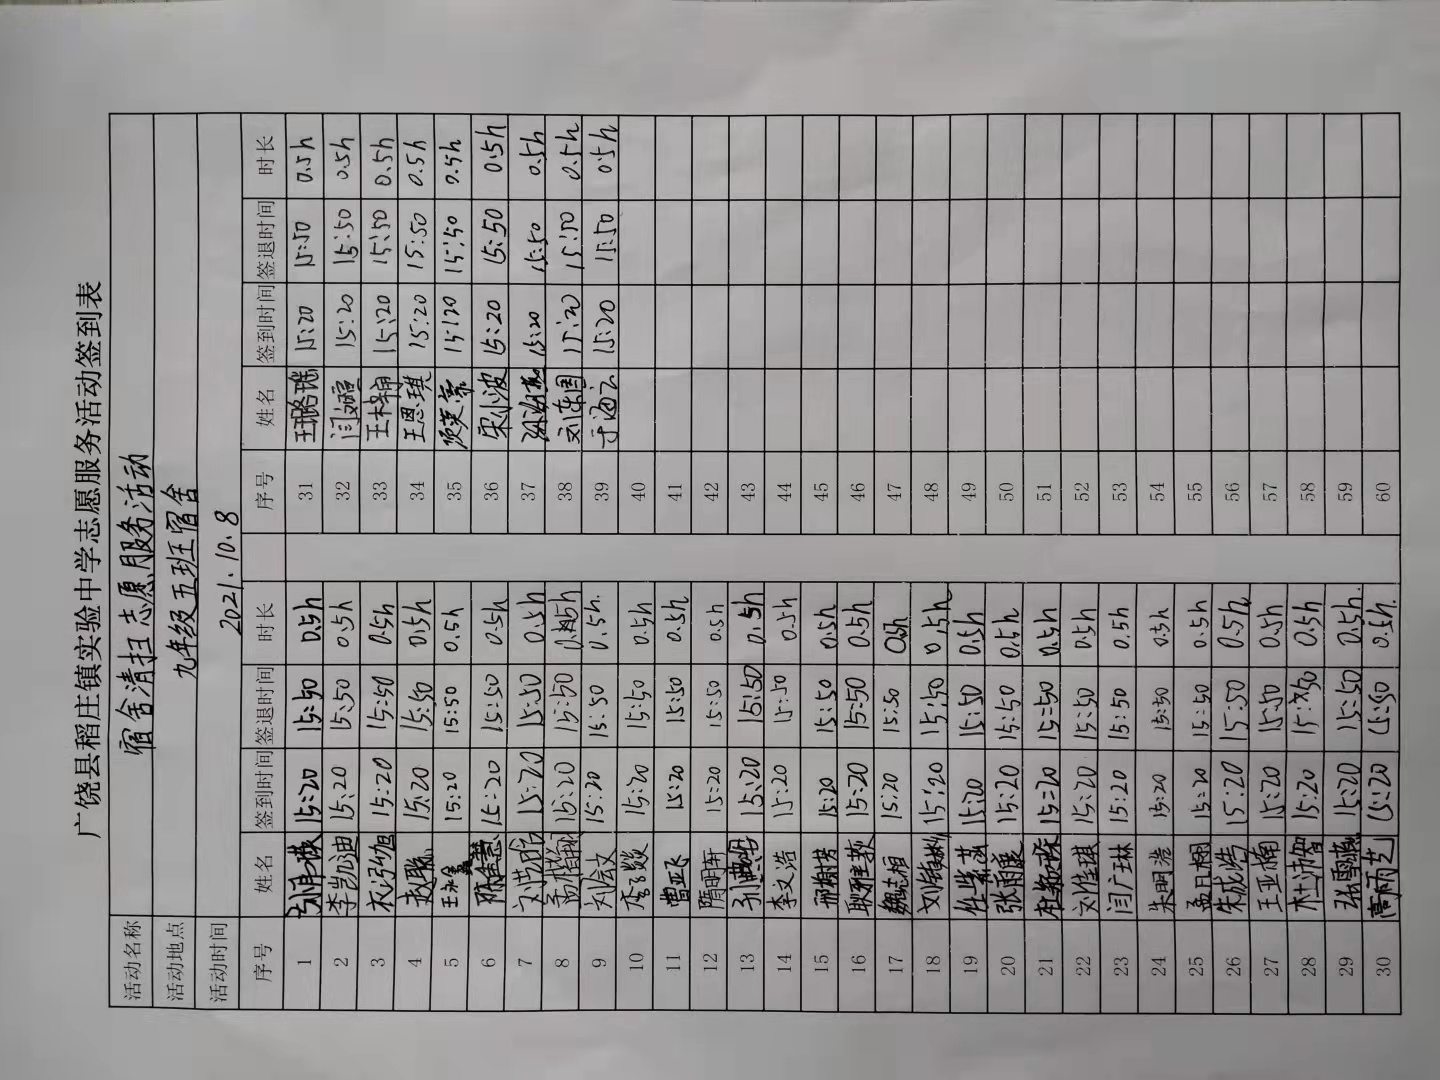 广饶县稻庄镇实验中学志愿服务活动签到表
活动名称 宿舍清扫志愿服务活动
活动地点 九年级五班宿舍
活动时间 2021.10.8
序号 姓名 签到时间 签退时间 时长 序号 姓名 签到时间 签退时间 时长
1 15:20 15:50 0.5h 31 王璐瑶 15:20 15:50 0.5h
2 李凯迪 15:20 15:50 0.5h 32 15:20 15:50 0.5h
3 15:20 15:50 0.5h 33 15:20 15:50 0.5h
4 15:20 15:50 0.5h 34 王恩琪 15:20 15:50 0.5h
5 15:20 15:50 0.5h 35 15:20 15:50 0.5h
6 15:20 15:50 0.5h 36 宋小波 15:20 15:50 0.5h
7 15:20 15:50 0.5h 37 15:20 15:50 0.5h
8 15:20 15:50 0.5h 38 15:20 15:50 0.5h
9 刘会文 15:20 15:50 0.5h. 39 15:20 15:50 0.5h
10 15:20 15:50 0.5h 40
11 曹亚飞 15:20 15:50 0.5h 41
12 隋明轩 15:20 15:50 0.5h 42
13 15:20 15:50 0.5h 43
14 李文浩 15:20 15:50 0.5h 44
15 15:20 15:50 0.5h 45
16 15:20 15:50 0.5h 46
17 魏志恒 15:20 15:50 0.5h 47
18 15:20 15:50 0.5h 48
19 任紫菡 15:20 15:50 0.5h 49
20 张雨晨 15:20 15:50 0.5h 50
21 15:20 15:50 0.5h 51
22 刘佳琪 15:20 15:50 0.5h 52
23 闫广林 15:20 15:50 0.5h 53
24 朱明浩 15:20 15:50 0.5h 54
25 15:20 15:50 0.5h 55
26 朱成浩 15:20 15:50 0.5h 56
27 王亚楠 15:20 15:50 0.5h 57
28 15:20 15:50 0.5h 58
29 15:20 15:50 0.5h. 59
30 15:20 15:50 0.5h. 60